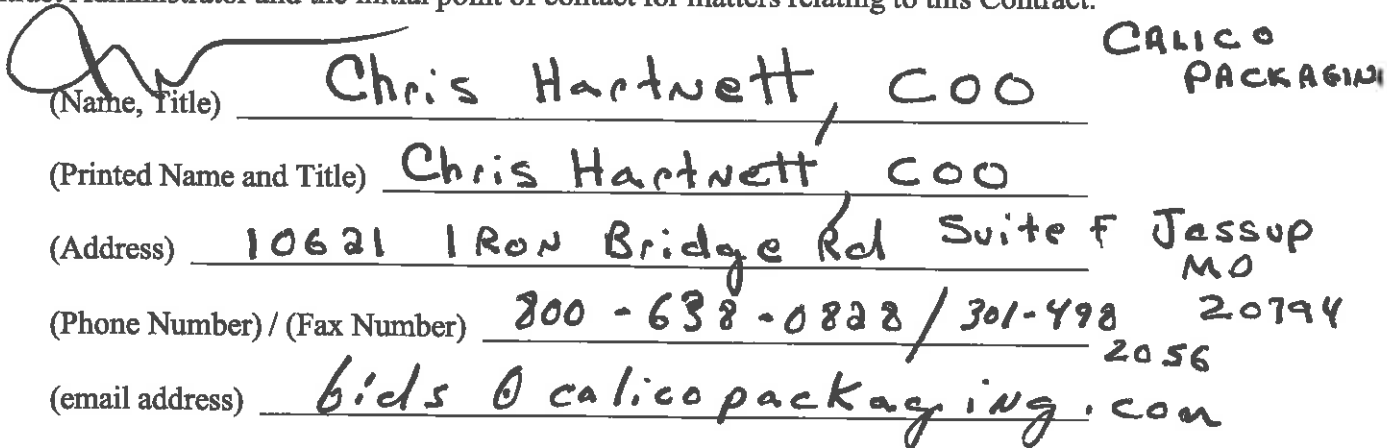 ract Administrator and the initial point of contact for matters relating to this Contract.
CALICO
PACKAGIN
(Name, Title) Chris Hartnett, COO
(Printed Name and Title) Chris Hartnett, COO
(Address) 10621 IRON Bridge Rd Suite F Jessup
MD
20794
(Phone Number) / (Fax Number) 800-638-0828 / 301-498
2056
(email address) bids @ calicopackaging.com